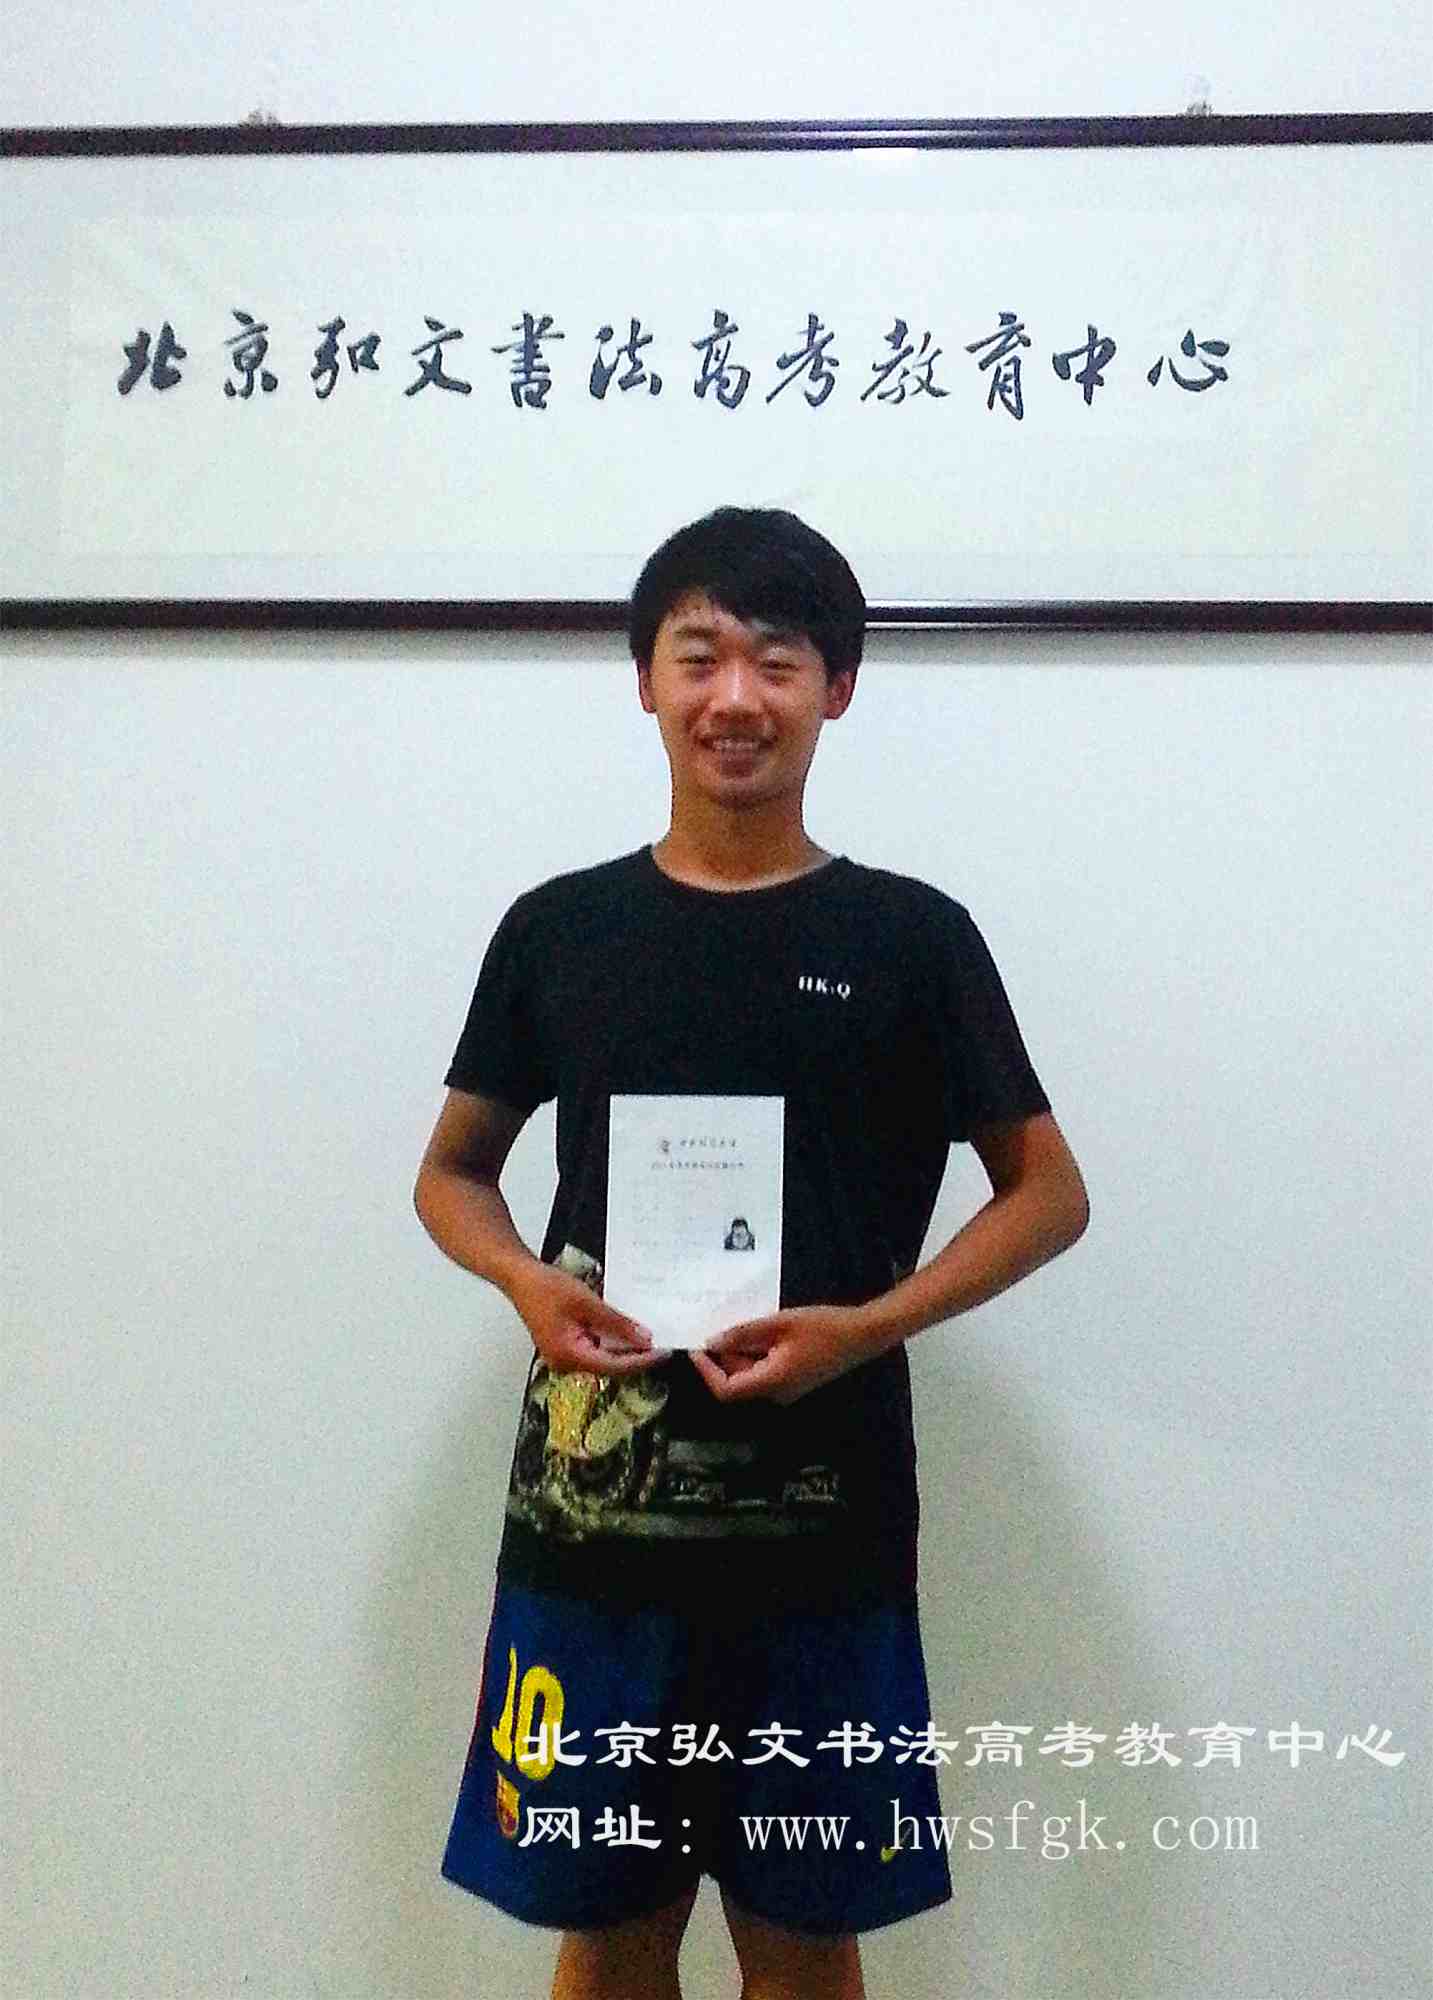 北京弘文書法高考教育中心
HK.Q
10
北京弘文书法高考教育中心
网址：www.hwsfgk.com